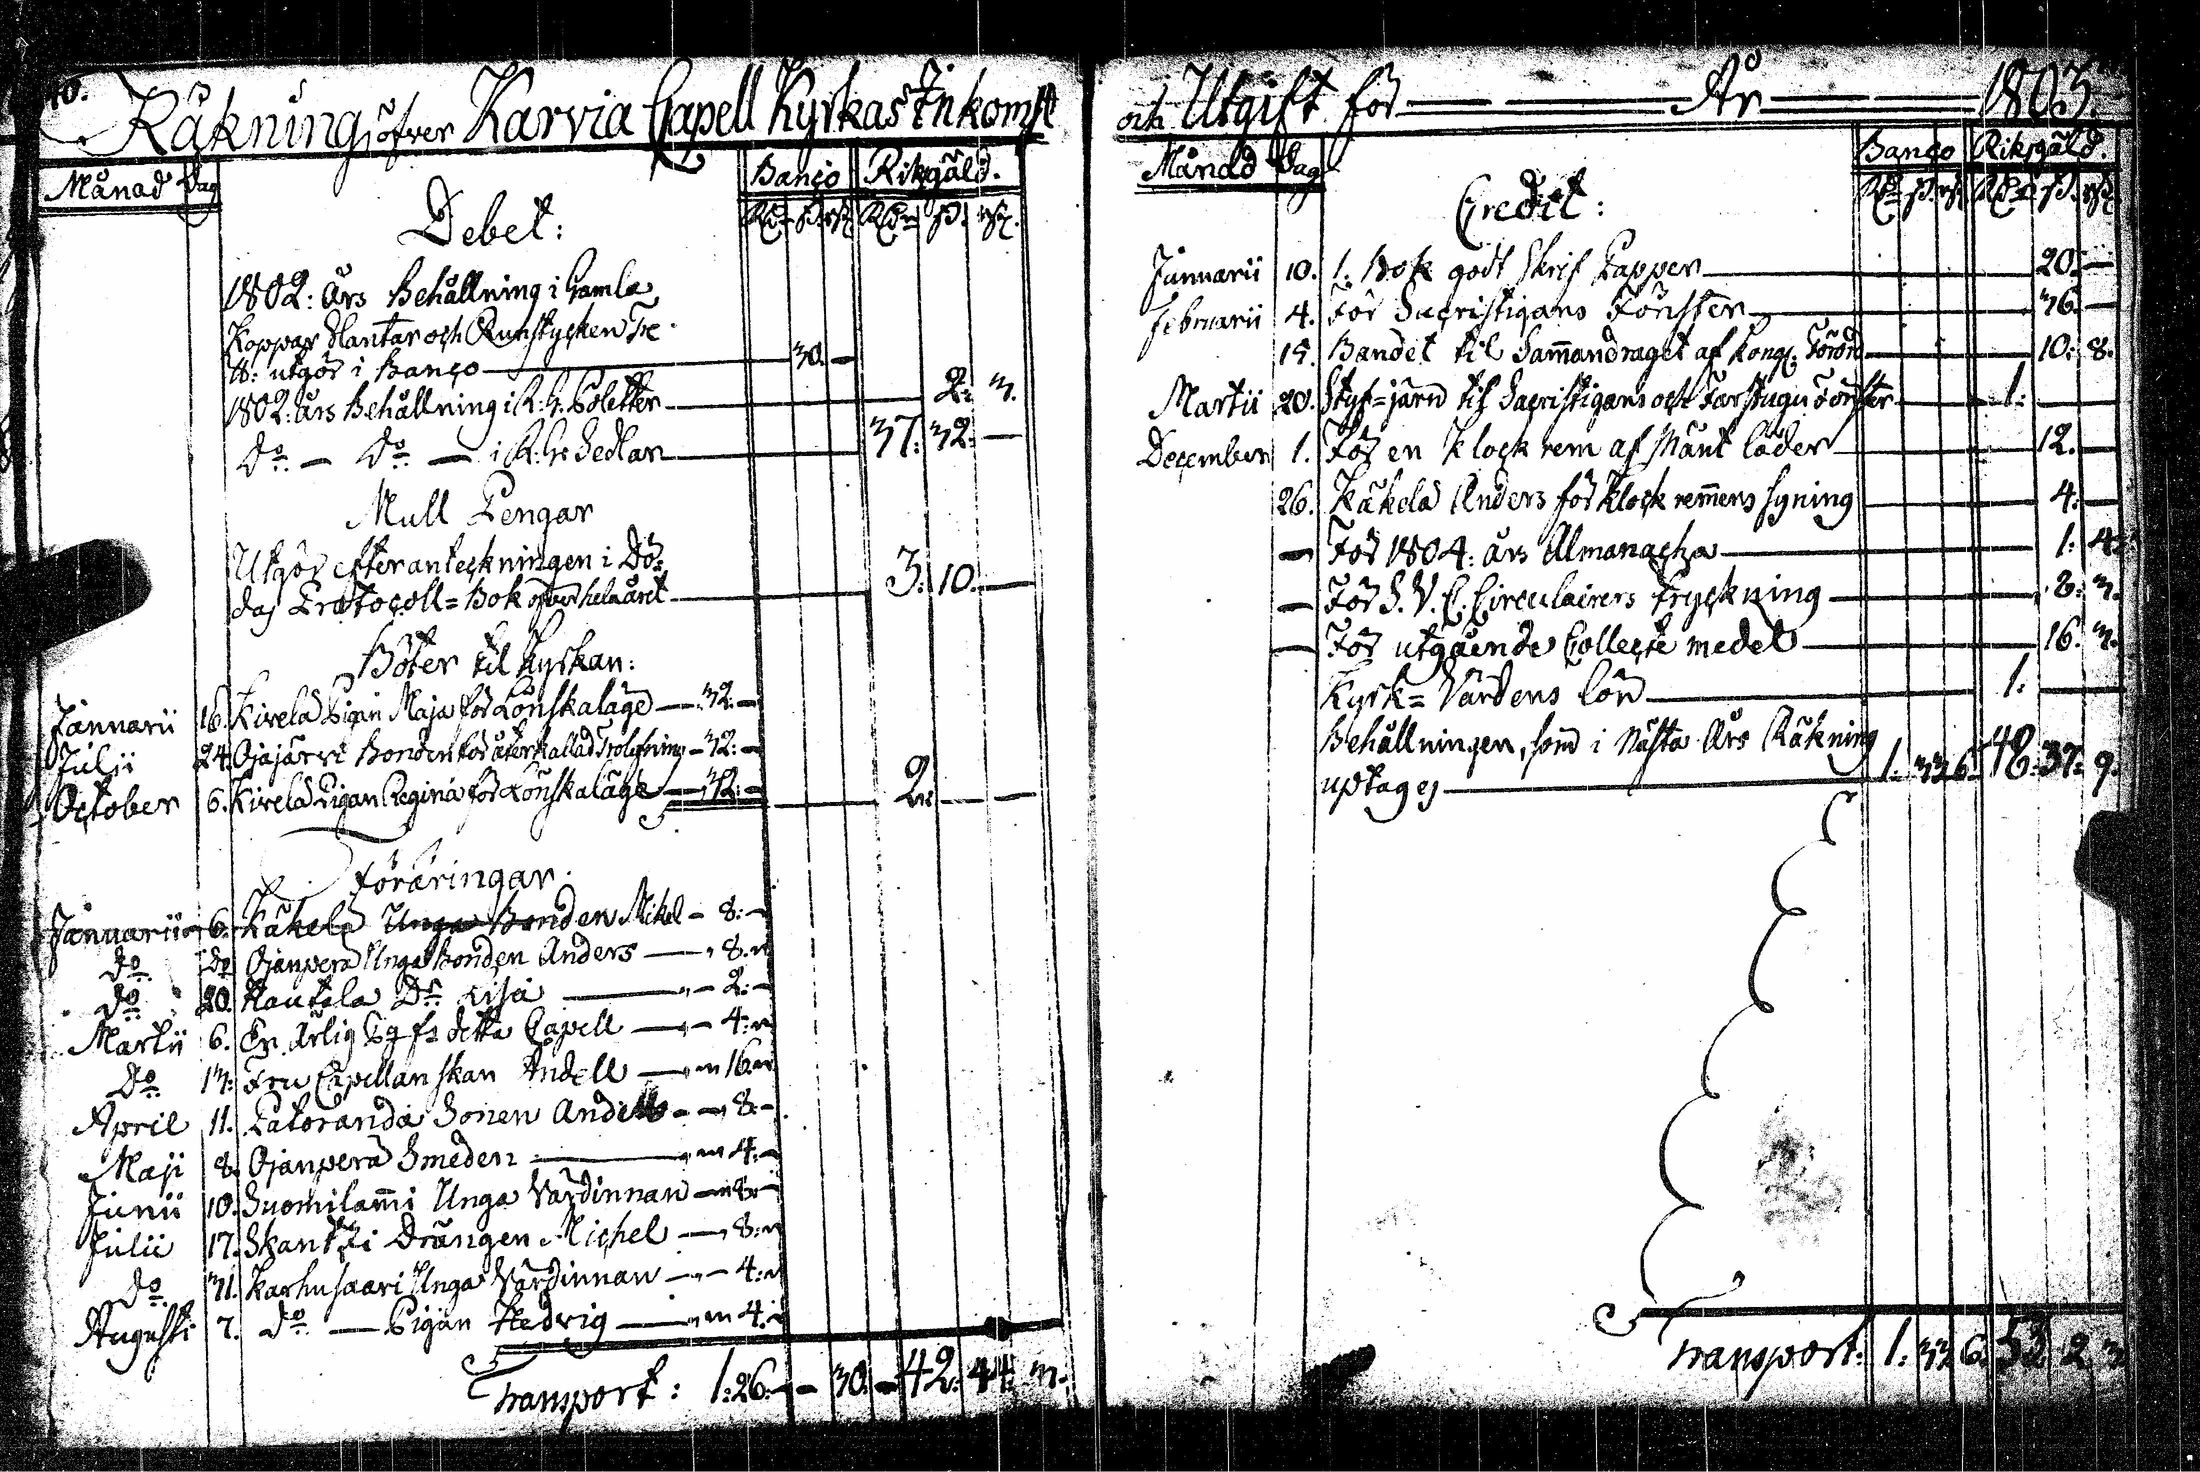 40.
Räkning öfver Karvia Capell Kyrkas Inkomst
Månad Dag Banco Riksgäld.
Debet: Rdr ß. rst. Rdr ß. rst.
1802: års Behållning i Gamla
Koppar Slantar och Runstycken
utgör i Banco — 30. —
1802: års Behållning i R: G: Poletter — 2: 3.
do — do — i R: G: Sedlar — 37: 32: —
Mull Pengar
Utgör efter anteckningen i Dö=
das Protocoll=Bok öfver hela året — 3: 10. —
Böter til Kyrkan:
Januarii 16. Kivelä Pigan Maja för Lönskaläge — 32: —
Julii 24. Ojajärvi Bonden för återkallad Trolofning — 32: —
October 6. Kivelä Pigan Regina för Lönskaläge — 32: — 2: — —
Föräringar.
Januarii 6. Käkelä Unga Bonden Mikel — 8: —
do do Ojanperä Unga Bonden Anders — 8. —
do 20. Rautela Dr Lisa — 2: —
Martii 6. En Ärlig Pg fr detta Capell — 4: —
do 13. Fru Capellanskan Andell — 16. —
April 11. Patoranda Sonen Anders — 8: —
Maji 8. Ojanperä Smeden — 4: —
Junii 10. Suomilam̄i Unga Värdinnan — 8: —
Julii 17. Skantzi Drängen Michel — 8: —
do 31. Karhusaari Unga Värdinnan — 4: —
Augusti 7. do — Pigan Hedvig — 4. —
Transport: 1: 26: — — 30. — 42: 44: 3.
och Utgift för — År — 1803.
Månad Dag Banco Riksgäld.
Credit: Rdr ß. rst. Rdr ß. rst.
Januarii 10. 1. Bok godt Skrif Papper — 20: —
Februarii 4. För Sacristigans Fönster — 36. —
15. Bandet til Sam̄andraget af Kongl. Förord — 10: 8.
Martii 20. Styf=järn til Sacristigans och Farstugu Fönster — 1: —
December 1. För en Klock rem af Sänt läder — 12. —
26. Käkelä Anders för Klock rem̄ens syning — 4: —
— För 1804: års Almanacha — 1: 4.
— För S. V. C. Circulairers Tryckning — 8: 3.
— För utgående Collecte medel — 16. 3.
Kyrk=Värdens lön — 1: —
Behållningen, som i Nästa Års Räkning
uptages — 1: 33 6. 48: 37: 9.
Transport: 1: 33 6. 53. 2. 3.